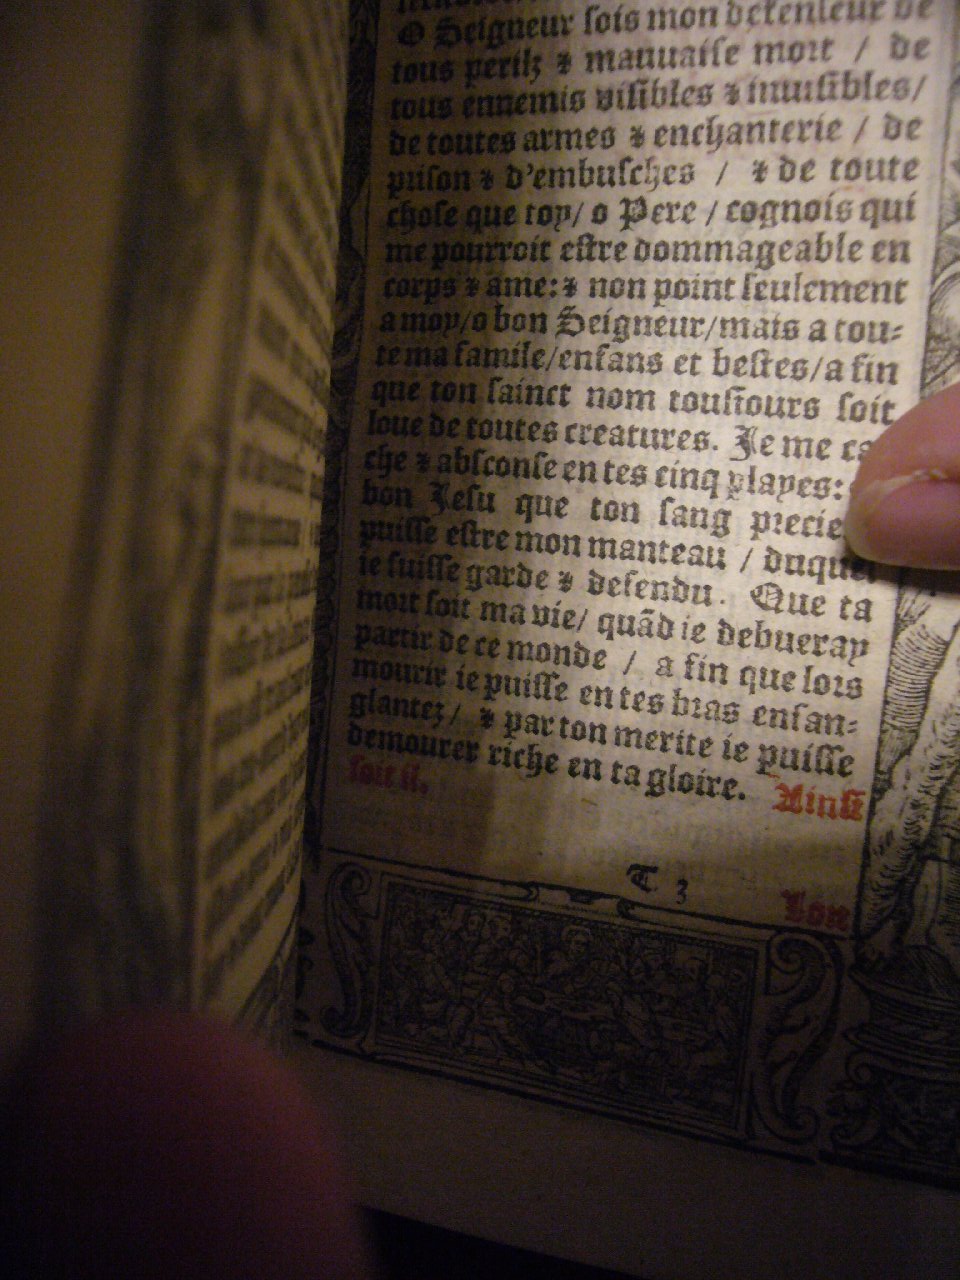 O Seigneur sois mon defenseur de
tous perilz ⁊ mauuaise mort / de
tous ennemis visibles ⁊ inuisibles/
de toutes armes ⁊ enchanterie / de
prison ⁊ d'embusches / ⁊ de toute
chose que toy/ o Pere / cognois qui
me pourroit estre dommageable en
corps ⁊ ame: ⁊ non point seulement
a moy/o bon Seigneur/mais a tou⸗
te ma famile/enfans et bestes/a fin
que ton sainct nom tousiours soit
loue de toutes creatures. Je me ca
che ⁊ absconse en tes cinq playes:
bon Jesu que ton sang precie
puisse estre mon manteau / duquel
ie suisse garde ⁊ defendu. Que ta
mort soit ma vie/ quãd ie debueray
partir de ce monde / a fin que lors
mourir ie puisse en tes bras ensan⸗
glantez/ ⁊ par ton merite ie puisse
demourer riche en ta gloire. Ainsi
soit il.
T 3